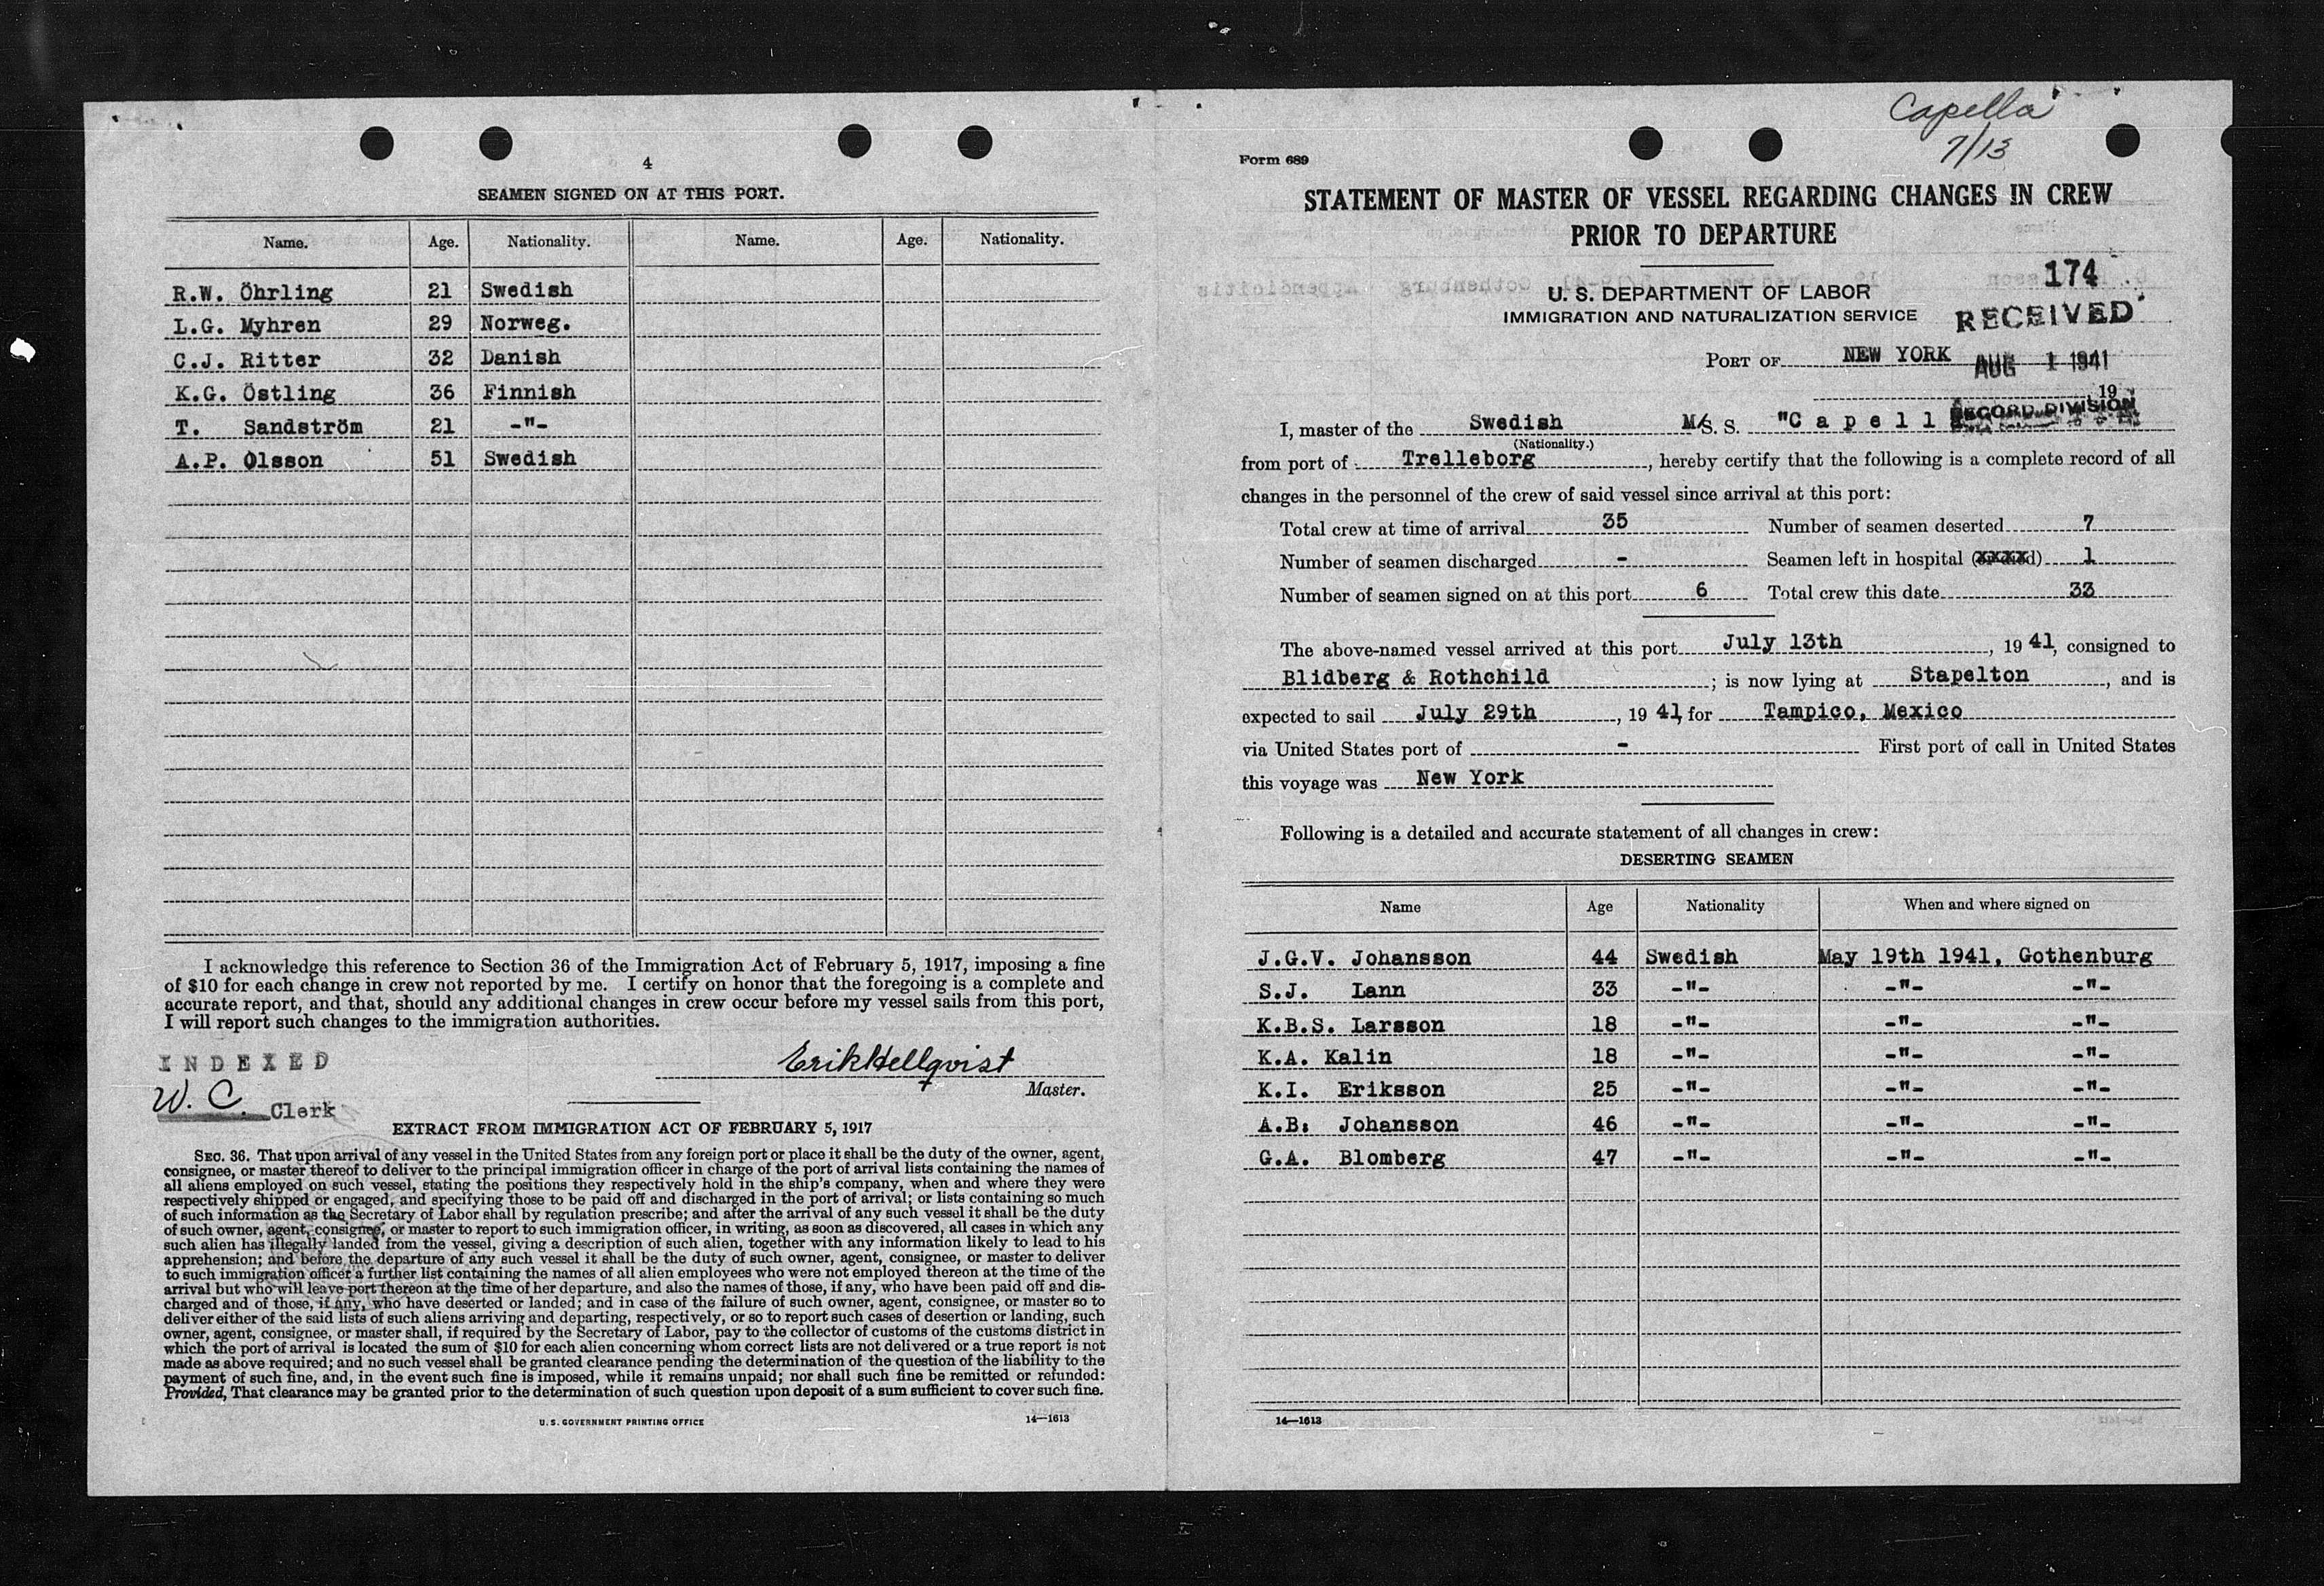 4
SEAMEN SIGNED ON AT THIS PORT.
Name. Age. Nationality. Name. Age. Nationality.
R.W. Öhrling 21 Swedish
L.G. Myhren 29 Norweg.
C.J. Ritter 32 Danish
K.G. Östling 36 Finnish
T. Sandström 21 -"-
A.P. Olsson 51 Swedish
I acknowledge this reference to Section 36 of the Immigration Act of February 5, 1917, imposing a fine
of $10 for each change in crew not reported by me. I certify on honor that the foregoing is a complete and
accurate report, and that, should any additional changes in crew occur before my vessel sails from this port,
I will report such changes to the immigration authorities.
INDEXED
Erik Hellqvist
Master.
W. C. Clerk
EXTRACT FROM IMMIGRATION ACT OF FEBRUARY 5, 1917
SEC. 36. That upon arrival of any vessel in the United States from any foreign port or place it shall be the duty of the owner, agent,
consignee, or master thereof to deliver to the principal immigration officer in charge of the port of arrival lists containing the names of
all aliens employed on such vessel, stating the positions they respectively hold in the ship's company, when and where they were
respectively shipped or engaged, and specifying those to be paid off and discharged in the port of arrival; or lists containing so much
of such information as the Secretary of Labor shall by regulation prescribe; and after the arrival of any such vessel it shall be the duty
of such owner, agent, consignee, or master to report to such immigration officer, in writing, as soon as discovered, all cases in which any
such alien has illegally landed from the vessel, giving a description of such alien, together with any information likely to lead to his
apprehension; and before the departure of any such vessel it shall be the duty of such owner, agent, consignee, or master to deliver
to such immigration officer a further list containing the names of all alien employees who were not employed thereon at the time of the
arrival but who will leave port thereon at the time of her departure, and also the names of those, if any, who have been paid off and dis-
charged and of those, if any, who have deserted or landed; and in case of the failure of such owner, agent, consignee, or master so to
deliver either of the said lists of such aliens arriving and departing, respectively, or so to report such cases of desertion or landing, such
owner, agent, consignee, or master shall, if required by the Secretary of Labor, pay to the collector of customs of the customs district in
which the port of arrival is located the sum of $10 for each alien concerning whom correct lists are not delivered or a true report is not
made as above required; and no such vessel shall be granted clearance pending the determination of the question of the liability to the
payment of such fine, and, in the event such fine is imposed, while it remains unpaid; nor shall such fine be remitted or refunded:
Provided, That clearance may be granted prior to the determination of such question upon deposit of a sum sufficient to cover such fine.
U. S. GOVERNMENT PRINTING OFFICE 14—1613
Capella
7/13
Form 689
STATEMENT OF MASTER OF VESSEL REGARDING CHANGES IN CREW
PRIOR TO DEPARTURE
174
U. S. DEPARTMENT OF LABOR
IMMIGRATION AND NATURALIZATION SERVICE
RECEIVED
PORT OF NEW YORK AUG 1 1941
19
RECORD DIVISION
I, master of the Swedish M/S. S. "C a p e l l
(Nationality.)
from port of Trelleborg, hereby certify that the following is a complete record of all
changes in the personnel of the crew of said vessel since arrival at this port:
Total crew at time of arrival 35 Number of seamen deserted 7
Number of seamen discharged - Seamen left in hospital (xxxxd) 1
Number of seamen signed on at this port 6 Total crew this date 33
The above-named vessel arrived at this port July 13th, 19 41, consigned to
Blidberg & Rothchild; is now lying at Stapelton, and is
expected to sail July 29th, 19 41, for Tampico, Mexico
via United States port of - First port of call in United States
this voyage was New York
Following is a detailed and accurate statement of all changes in crew:
DESERTING SEAMEN
Name Age Nationality When and where signed on
J.G.V. Johansson 44 Swedish May 19th 1941, Gothenburg
S.J. Lann 33 -"- -"- -"-
K.B.S. Larsson 18 -"- -"- -"-
K.A. Kalin 18 -"- -"- -"-
K.I. Eriksson 25 -"- -"- -"-
A.B: Johansson 46 -"- -"- -"-
G.A. Blomberg 47 -"- -"- -"-
14—1613